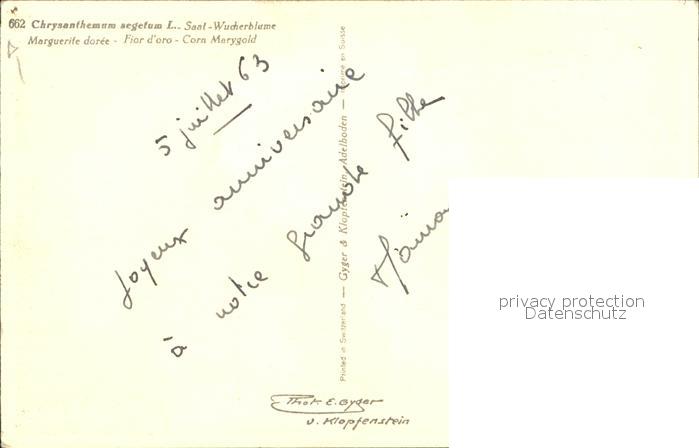 662 Chrysanthemum segetum L.. Saat-Wucherblume
Marguerite dorée - Fior d'oro - Corn Marygold
5 juillet 63
Joyeux anniversaire
à notre grande fille
Printed in Switzerland — Gyger & Klopfenstein, Adelboden — Imprimé en Suisse
Phot. E. Gyger
u. Klopfenstein
privacy protection
Datenschutz